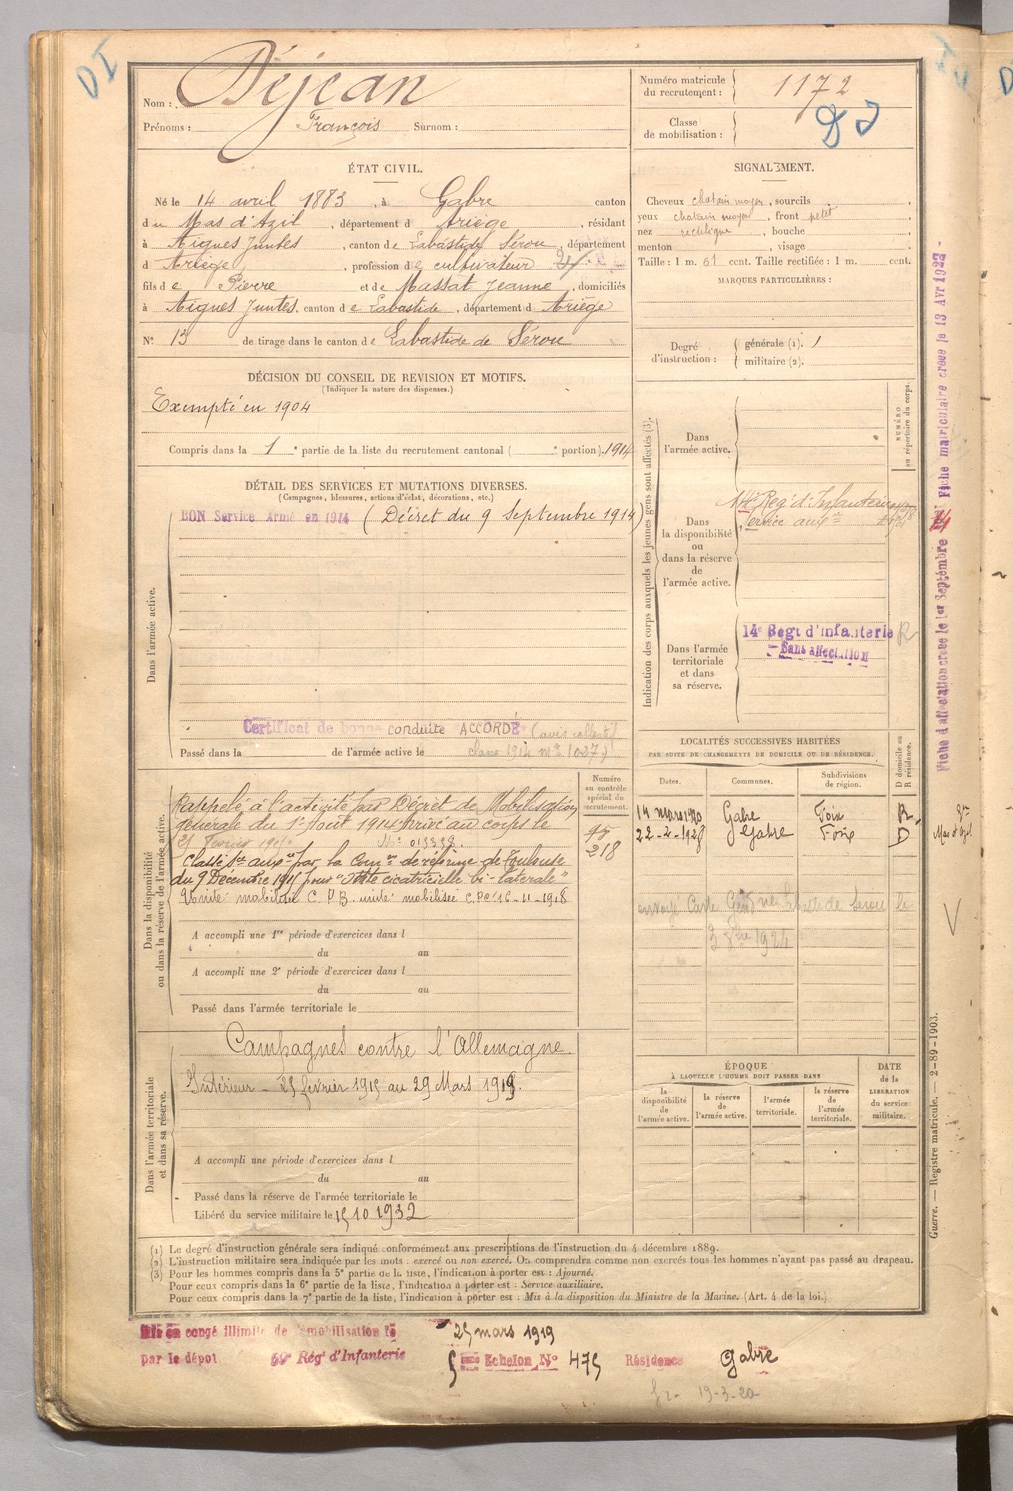 DI
Nom : Déjean
Prénoms : François Surnom :
Numéro matricule du recrutement : 1172
Classe de mobilisation :
ÉTAT CIVIL.
Né le 14 avril 1883, à Gabre canton
du Mas d'Azil, département d Ariège, résidant
à Aigues Juntes, canton de Labastide Sérou, département
d Ariège, profession de cultivateur
fils de Pierre et de Massat Jeanne, domiciliés
à Aigues Juntes, canton de Labastide, département d Ariège
N° 13 de tirage dans le canton de Labastide de Sérou
SIGNALEMENT.
Cheveux chatain moyen, sourcils
yeux chatain moyen, front petit
nez rectiligne, bouche
menton, visage
Taille : 1 m. 61 cent. Taille rectifiée : 1 m. cent.
MARQUES PARTICULIÈRES :
Degré d'instruction : générale (1). 1
militaire (2).
DÉCISION DU CONSEIL DE REVISION ET MOTIFS.
(Indiquer la nature des dispenses.)
Exempté en 1904
Compris dans la 1e partie de la liste du recrutement cantonal ( e portion). 1914
DÉTAIL DES SERVICES ET MUTATIONS DIVERSES.
(Campagnes, blessures, actions d'éclat, décorations, etc.)
Dans l'armée active.
BON Service Armé en 1914 (Décret du 9 Septembre 1914)
Certificat de bonne conduite ACCORDÉ
Passé dans la de l'armée active le
Indication des corps auxquels les jeunes gens sont affectés (3).
NUMÉRO au répertoire du corps.
Dans l'armée active.
Dans la disponibilité ou dans la réserve de l'armée active.
Reg' d'Infanterie
Service auxre
Dans l'armée territoriale et dans sa réserve.
14e Regt d'infanterie R
Sans affectation
Fiche d'affectation créée le 1er Septembre Fiche matriculaire créée le 13 Avr 1922
LOCALITÉS SUCCESSIVES HABITÉES
PAR SUITE DE CHANGEMENTS DE DOMICILE OU DE RÉSIDENCE.
D domicile ou R résidence.
Dates. Communes. Subdivisions de région.
14 mars 1920 Gabre Foix R.
22-2-1928 Gabre Foix D
Mas d'Azil
Dans la disponibilité ou dans la réserve de l'armée active.
Numéro au contrôle spécial du recrutement.
Rappelé à l'activité par Décret de Mobilisation
générale du 1er Août 1914 Arrivé au corps le
25 février 1915
Classé Sce auxre par la Comon de réforme de Toulouse
du 9 Décembre 1915 pour "Otite cicatricielle bi-latérale"
218
A accompli une 1re période d'exercices dans l
du au
A accompli une 2e période d'exercices dans l
du au
Passé dans l'armée territoriale le
Dans l'armée territoriale et dans sa réserve.
Campagnes contre l'Allemagne.
Intérieur - 25 février 1915 au 29 Mars 1919.
A accompli une période d'exercices dans l
du au
Passé dans la réserve de l'armée territoriale le
Libéré du service militaire le 15 10 1932
ÉPOQUE
À LAQUELLE L'HOMME DOIT PASSER DANS
la disponibilité de l'armée active. la réserve de l'armée active. l'armée territoriale. la réserve de l'armée territoriale.
DATE de la LIBÉRATION du service militaire.
Guerre. — Registre matricule. — 2-89-1903.
(1) Le degré d'instruction générale sera indiqué conformément aux prescriptions de l'instruction du 4 décembre 1889.
(2) L'instruction militaire sera indiquée par les mots : exercé ou non exercé. On comprendra comme non exercés tous les hommes n'ayant pas passé au drapeau.
(3) Pour les hommes compris dans la 5e partie de la liste, l'indication à porter est : Ajourné.
Pour ceux compris dans la 6e partie de la liste, l'indication à porter est : Service auxiliaire.
Pour ceux compris dans la 7e partie de la liste, l'indication à porter est : Mis à la disposition du Ministre de la Marine. (Art. 4 de la loi.)
Mis en congé illimité de démobilisation le 25 mars 1919
par le dépôt Rég' d'Infanterie 5 Echelon N° 475 Résidence Gabre
19-3-20